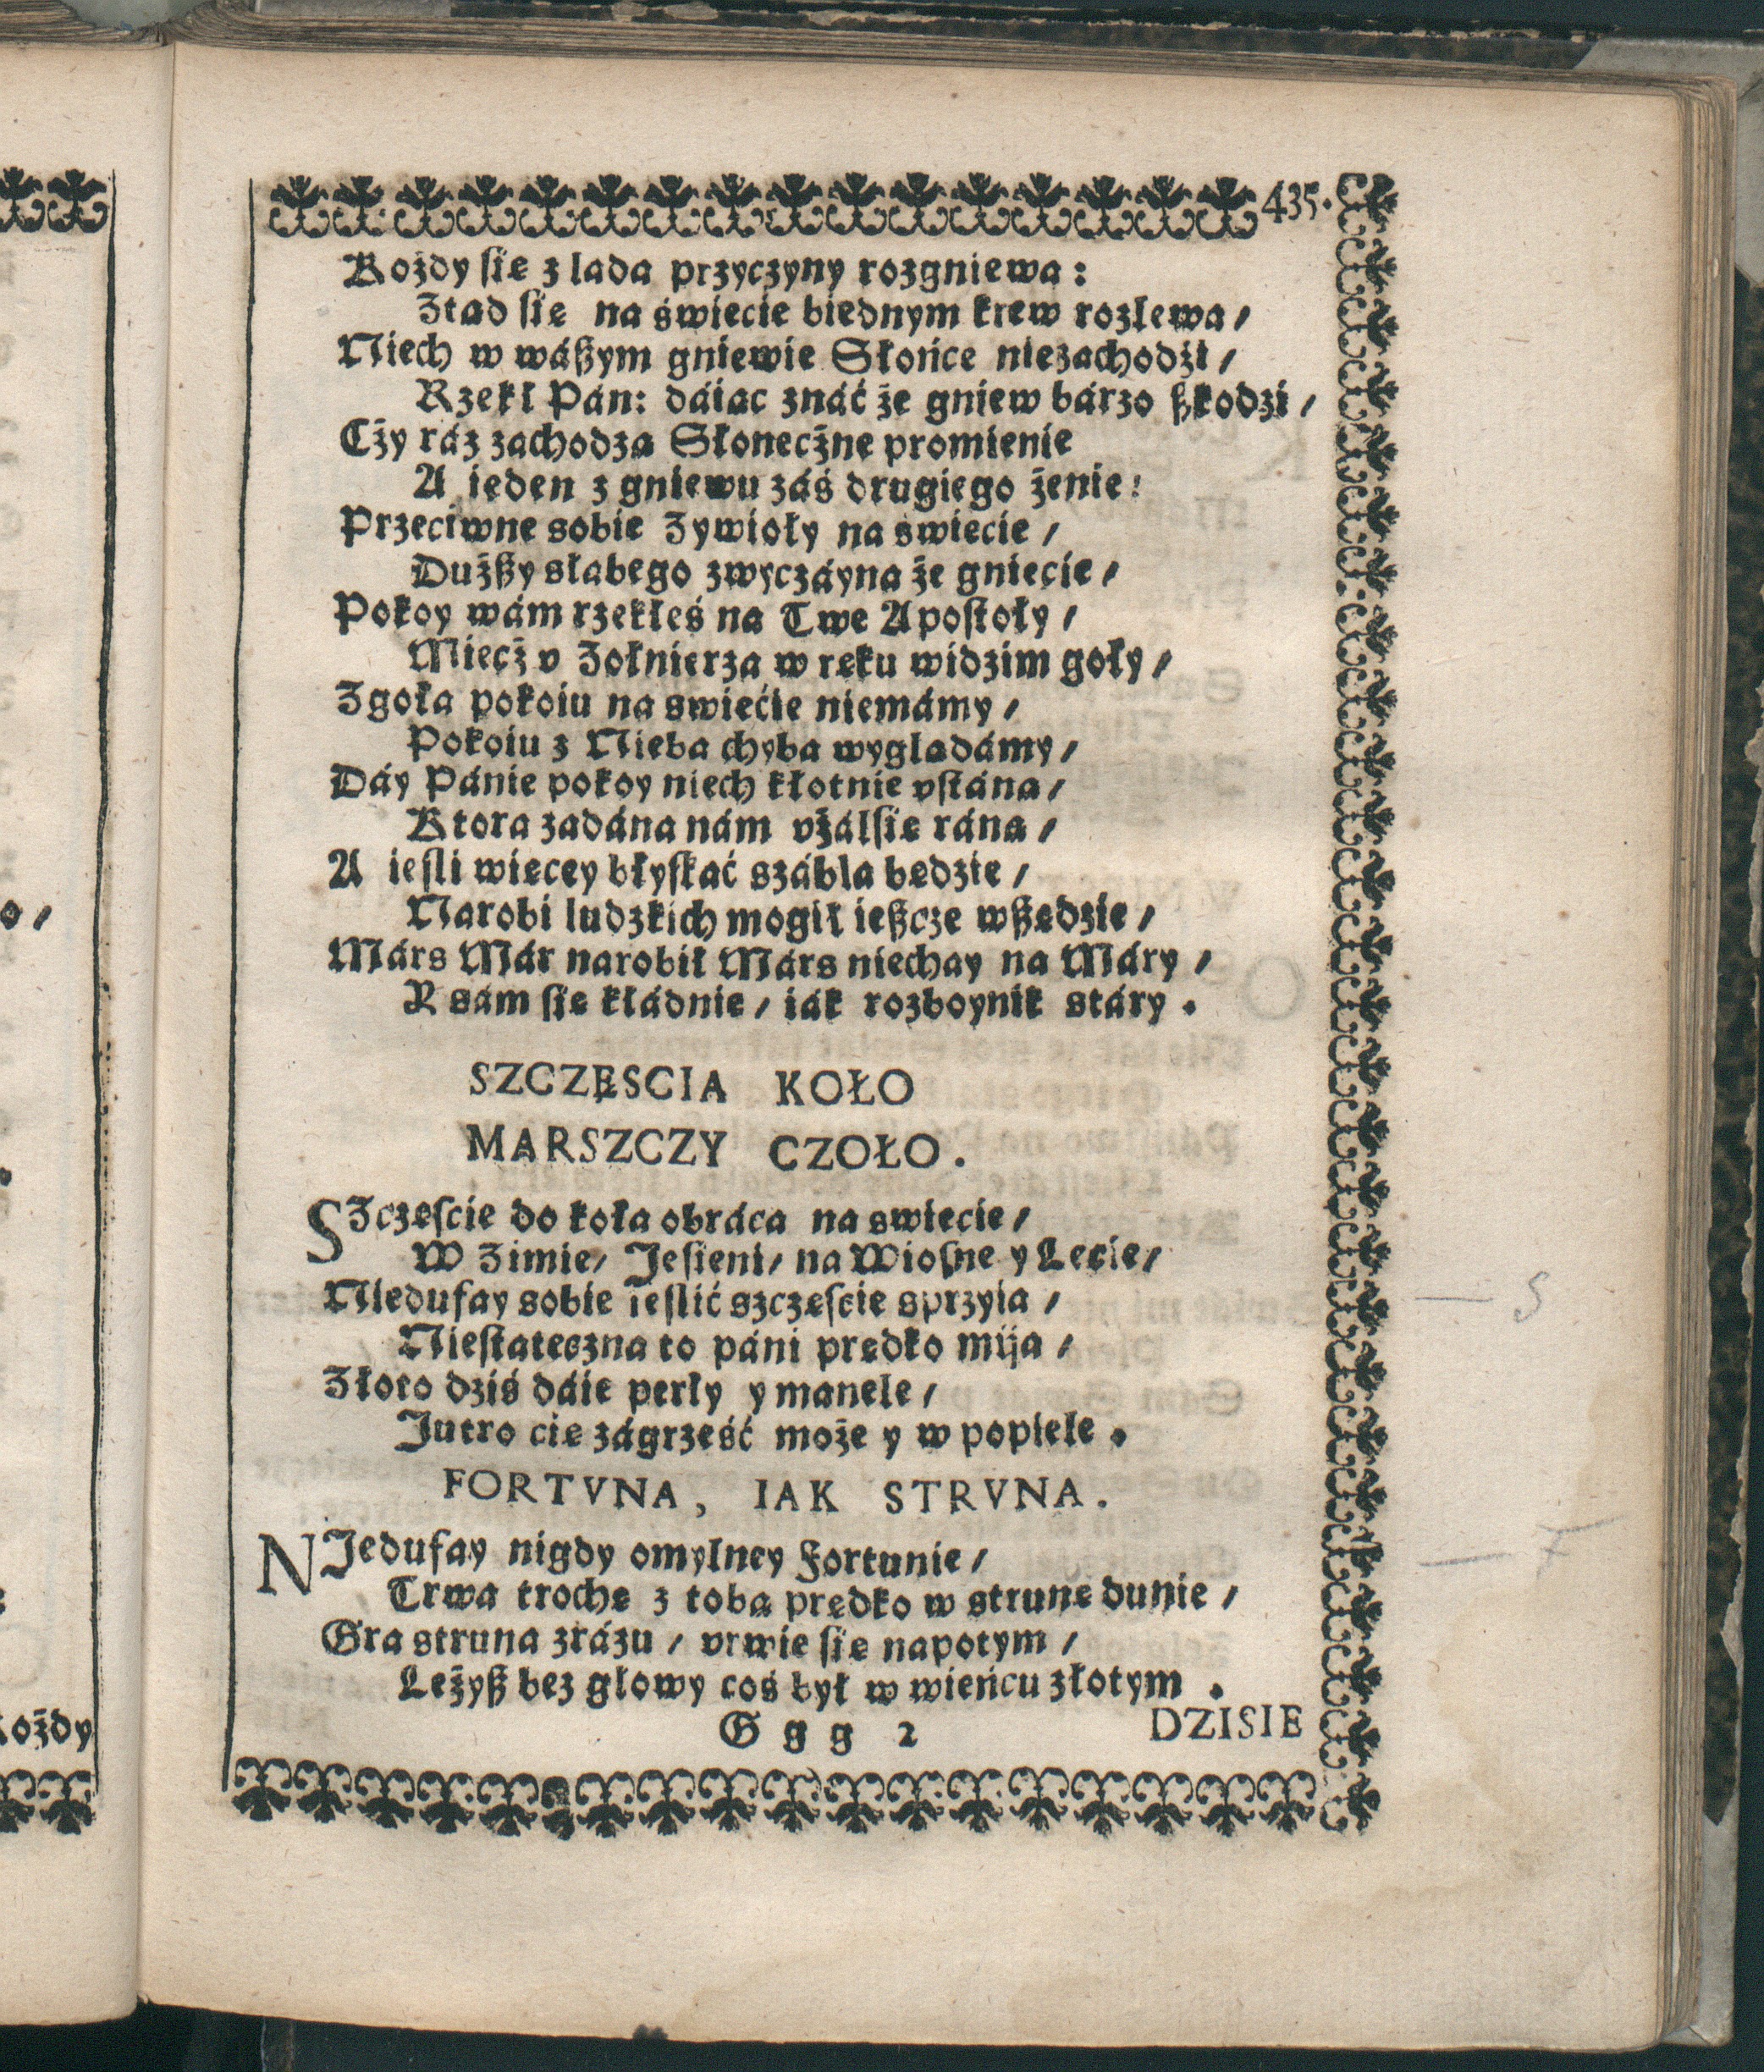 435.
Kożdy się z lada przyczyny rozgniewa:
Ztąd się na świecie biednym krew rozlewa/
Niech w wászym gniewie Słońce niezachodźi/
Rzekł Pán: dáiąc znáć że gniew bárzo szkodzi/
Czy ráz zachodzą Słoneczne promienie
A ieden z gniewu záś drugiego żenie:
Przeciwne sobie Zywioły na swiecie/
Duższy słabego zwyczáyna że gniecie/
Pokoy wám rzekłeś na Twe Apostoły/
Miecz v Zołnierza w ręku widzim goły/
Zgoła pokoiu na swiećie niemámy/
Pokoiu z Nieba chyba wyglądámy/
Dáy Pánie pokoy niech kłotnie vstáną/
Ktora zadána nám vżálsię ráną/
A iesli więcey błyskáć szábla będzie/
Narobi ludzkich mogił ieszcze wszędzie/
Márs Már narobił Márs niechay na Máry/
R sám się kłádnie/ iák rozboynik stáry.
SZCZĘSCIA KOŁO
MARSZCZY CZOŁO.
SZczęscie do koła obráca na swiecie/
W Zimie/ Jesieni/ na Wiosnę y Lecie/
Niedufay sobie ieslić szczęscie sprzyia/
Niestateczna to páni prędko mija/
Złoto dziś dáie perły y manele/
Jutro cię zágrześć może y w popiele.
FORTVNA, IAK STRVNA.
NJedufay nigdy omylney Fortunie/
Trwa trochę z tobą prędko w strunę dunie/
Gra struna zrázu/ vrwie się napotym/
Leżysz bez głowy coś był w wieńcu złotym.
Ggg 2
DZISIE
o/
ożdy